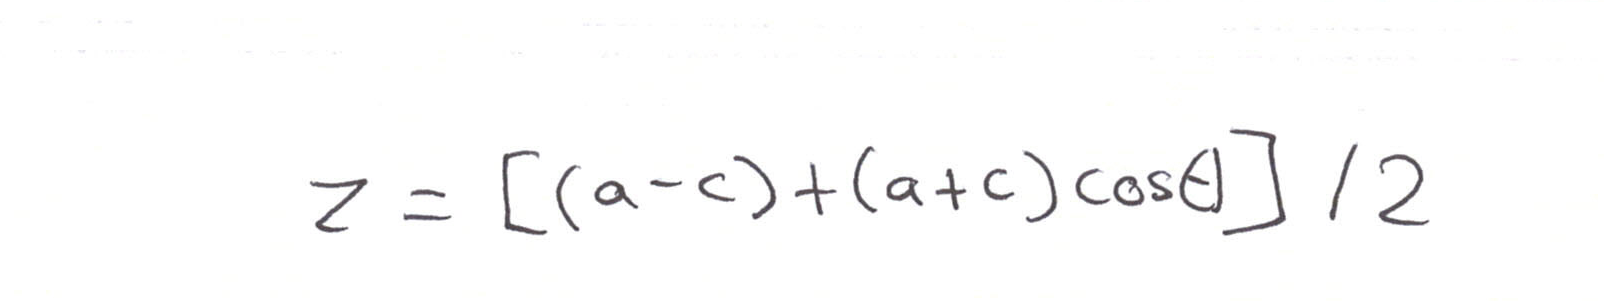 z = [(a-c)+(a+c)cosθ]/2